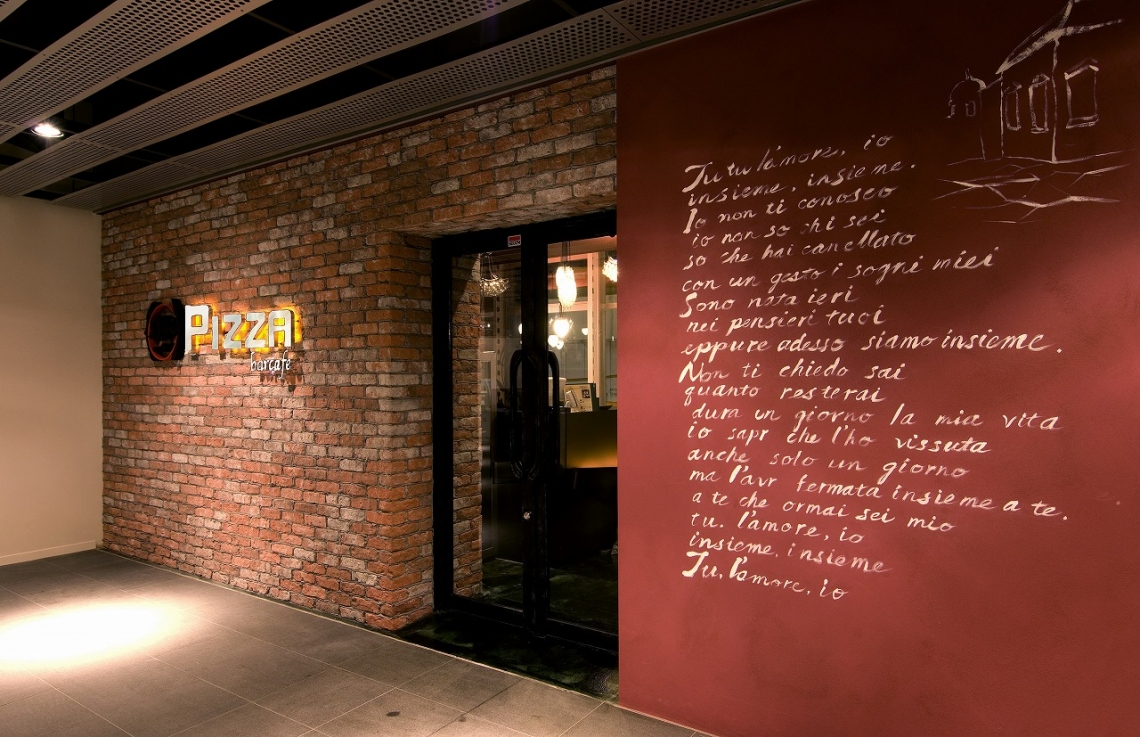 PIZZA
barcafé
Tu tu l'amore, io
insieme, insieme.
Io non ti conosco
io non so chi sei
so che hai cancellato
con un gesto i sogni miei
Sono nata ieri
nei pensieri tuoi
eppure adesso siamo insieme.
Non ti chiedo sai
quanto resterai
dura un giorno la mia vita
io sapr che l'ho vissuta
anche solo un giorno
ma l'avr fermata insieme a te.
a te che ormai sei mio
tu. l'amore, io
insieme, insieme
Tu. l'amore, io